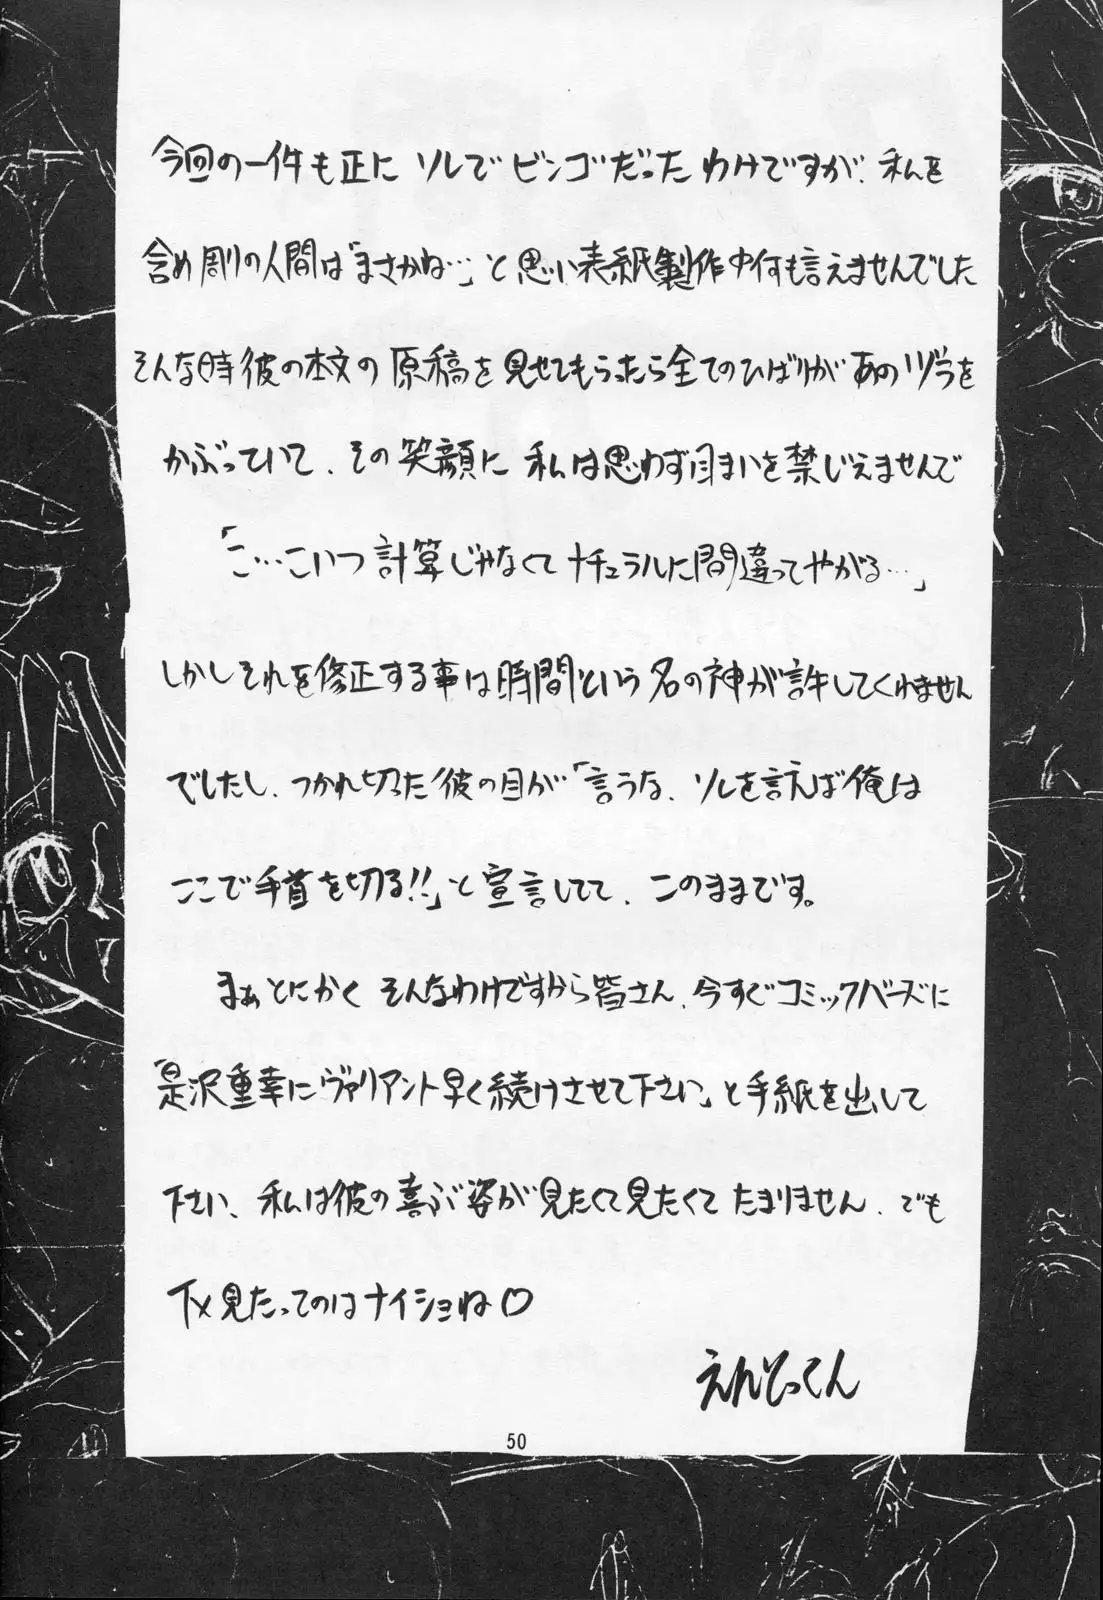 今回の一件も正にソレでビンゴだったわけですが、私を
含め周りの人間は「まさかね…」と思い表紙製作中何も言えませんでした
そんな時彼の本文の原稿を見せてもらったら全てのひばりがあのヅラを
かぶっていて、その笑顔に私は思わず目まいを禁じえませんで
「こ…こいつ計算じゃなくてナチュラルに間違ってやがる…」
しかしそれを修正する事は時間という名の神が許してくれません
でしたし、つかれ切った彼の目が「言うな、ソレを言えば俺は
ここで手首を切る!!」と宣言してて、このままです。
まぁとにかくそんなわけですから皆さん、今すぐコミックバーズに
「是沢重幸にヴァリアント早く続けさせて下さい」と手紙を出して
下さい、私は彼の喜ぶ姿が見たくて見たくてたまりません、でも
下×見たってのはナイショね♡
えんどってん
50